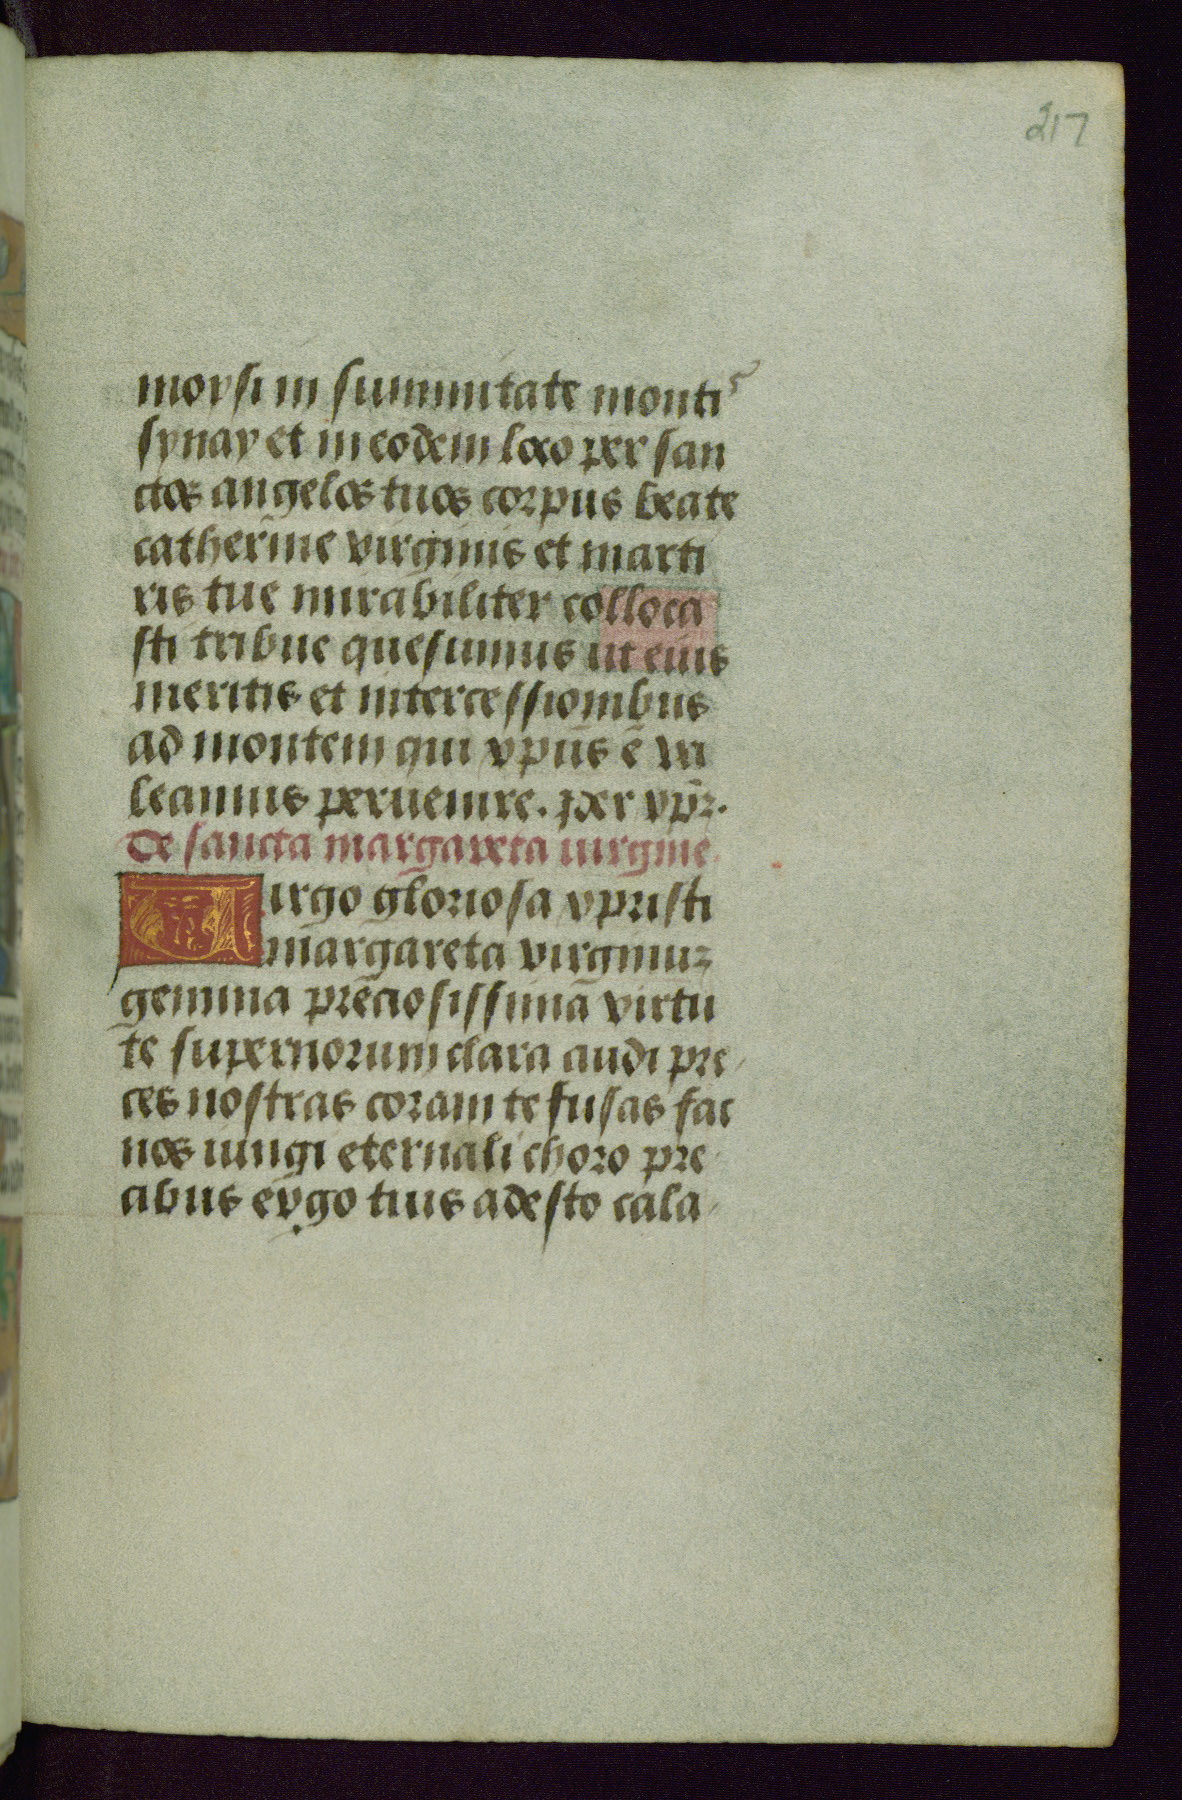 217
moysi in summitate montis
synay et in eodem loco per san
ctos angelos tuos corpus beate
catherine virginis et marti
ris tue mirabiliter colloca
sti tribue quesumus ut eius
meritis et intercessionibus
ad montem qui xp̄us ē va
leamus peruenire. per xp̄ꝛ.
De sancta margareta uirgine
Uirgo gloriosa xpristi
margareta virginuꝫ
gemma preciosissima virtu
te supernorum clara audi pre
ces nostras coram te fusas fac
nos iungi eternali choro pre
cibus ergo tuis adesto cala